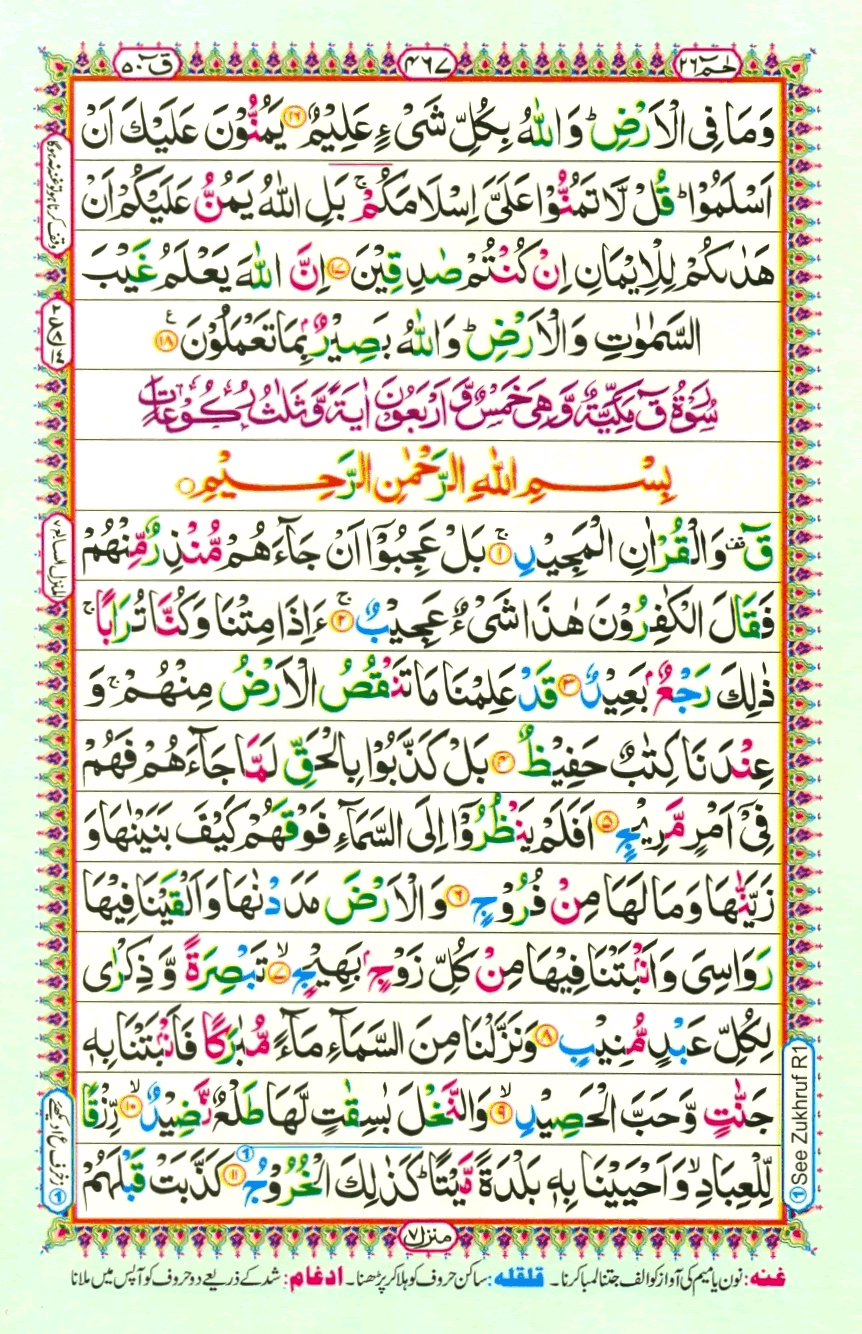 حٰمٓ ٢٦
٤٦٧
قٓ ٥٠
وَمَا فِی الْاَرْضِ ؕ وَاللّٰهُ بِكُلِّ شَیْءٍ عَلِیْمٌ ۟۱۶ یَمُنُّوْنَ عَلَیْكَ اَنْ
اَسْلَمُوْا ؕ قُلْ لَّا تَمُنُّوْا عَلَیَّ اِسْلَامَكُمْ ۚ بَلِ اللّٰهُ یَمُنُّ عَلَیْكُمْ اَنْ
هَدٰىكُمْ لِلْاِیْمَانِ اِنْ كُنْتُمْ صٰدِقِیْنَ ۟۱۷ اِنَّ اللّٰهَ یَعْلَمُ غَیْبَ
السَّمٰوٰتِ وَالْاَرْضِ ؕ وَاللّٰهُ بَصِیْرٌۢ بِمَا تَعْمَلُوْنَ ۟۱۸ ع
سُوْرَةُ قٓ مَكِّیَّةٌ وَّهِیَ خَمْسٌ وَّاَرْبَعُوْنَ اٰیَةً وَّثَلٰثُ رُكُوْعَاتٍ
بِسْمِ اللّٰهِ الرَّحْمٰنِ الرَّحِیْمِ
قٓ ۫ وَالْقُرْاٰنِ الْمَجِیْدِ ۟ۚ۱ بَلْ عَجِبُوْۤا اَنْ جَآءَهُمْ مُّنْذِرٌ مِّنْهُمْ
فَقَالَ الْكٰفِرُوْنَ هٰذَا شَیْءٌ عَجِیْبٌ ۟ۚ۲ ءَاِذَا مِتْنَا وَكُنَّا تُرَابًا ۚ
ذٰلِكَ رَجْعٌۢ بَعِیْدٌ ۟۳ قَدْ عَلِمْنَا مَا تَنْقُصُ الْاَرْضُ مِنْهُمْ ۚ وَ
عِنْدَنَا كِتٰبٌ حَفِیْظٌ ۟۴ بَلْ كَذَّبُوْا بِالْحَقِّ لَمَّا جَآءَهُمْ فَهُمْ
فِیْۤ اَمْرٍ مَّرِیْجٍ ۟۵ اَفَلَمْ یَنْظُرُوْۤا اِلَی السَّمَآءِ فَوْقَهُمْ كَیْفَ بَنَیْنٰهَا وَ
زَیَّنّٰهَا وَمَا لَهَا مِنْ فُرُوْجٍ ۟۶ وَالْاَرْضَ مَدَدْنٰهَا وَاَلْقَیْنَا فِیْهَا
رَوَاسِیَ وَاَنْۢبَتْنَا فِیْهَا مِنْ كُلِّ زَوْجٍۭ بَهِیْجٍ ۟ۙ۷ تَبْصِرَةً وَّذِكْرٰی
لِكُلِّ عَبْدٍ مُّنِیْبٍ ۟۸ وَنَزَّلْنَا مِنَ السَّمَآءِ مَآءً مُّبٰرَكًا فَاَنْۢبَتْنَا بِهٖ
جَنّٰتٍ وَّحَبَّ الْحَصِیْدِ ۟ۙ۹ وَالنَّخْلَ بٰسِقٰتٍ لَّهَا طَلْعٌ نَّضِیْدٌ ۟ۙ۱۰ رِّزْقًا
لِّلْعِبَادِ ۙ وَاَحْیَیْنَا بِهٖ بَلْدَةً مَّیْتًا ؕ كَذٰلِكَ الْخُرُوْجُ ۟۱۱ كَذَّبَتْ قَبْلَهُمْ
① See Zukhruf R1
منزل ٧
غنه: نون یا میم کی آواز کو الف جتنا لمبا کرنا۔ قلقله: ساکن حروف کو ہلا کر پڑھنا۔ ادغام: شد کے ذریعے دو حروف کو آپس میں ملانا